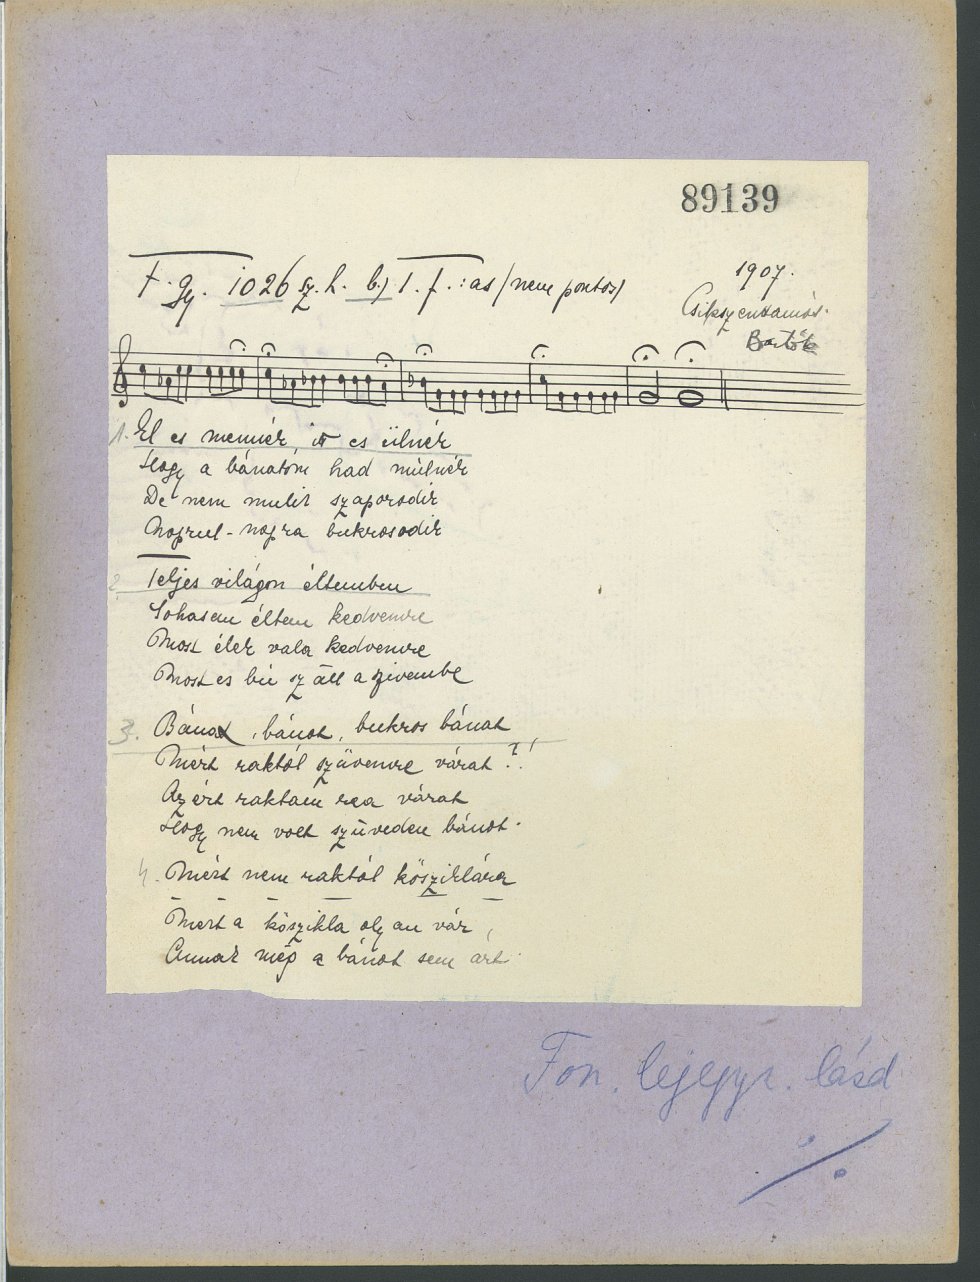 89139
F. gy. 1026 sz. h. b.) T. f. : as (nem pontos)
1907.
Csikszenttamás.
Bartók
1. El es mennék itt es ülnék
Hogy a bánatóm had múlnék
De nem mulik szaporodik
Naprul-napra bukrosodik
2. Teljes világon éltemben
Sohasem éltem kedvemre
Most élek vala kedvemre
Most es bú száll a szivembe
3. Bánat, bánat, bukros bánat
Mért raktál szüvemre várat?!
Azért raktam rea várat
Hogy nem volt szüveden bánat.
4. Mért nem raktál kösziklára
– – – – –
Mert a köszikla olyan vár,
Annak még a bánat sem árt.
Fon. lejegyz. lásd
./.